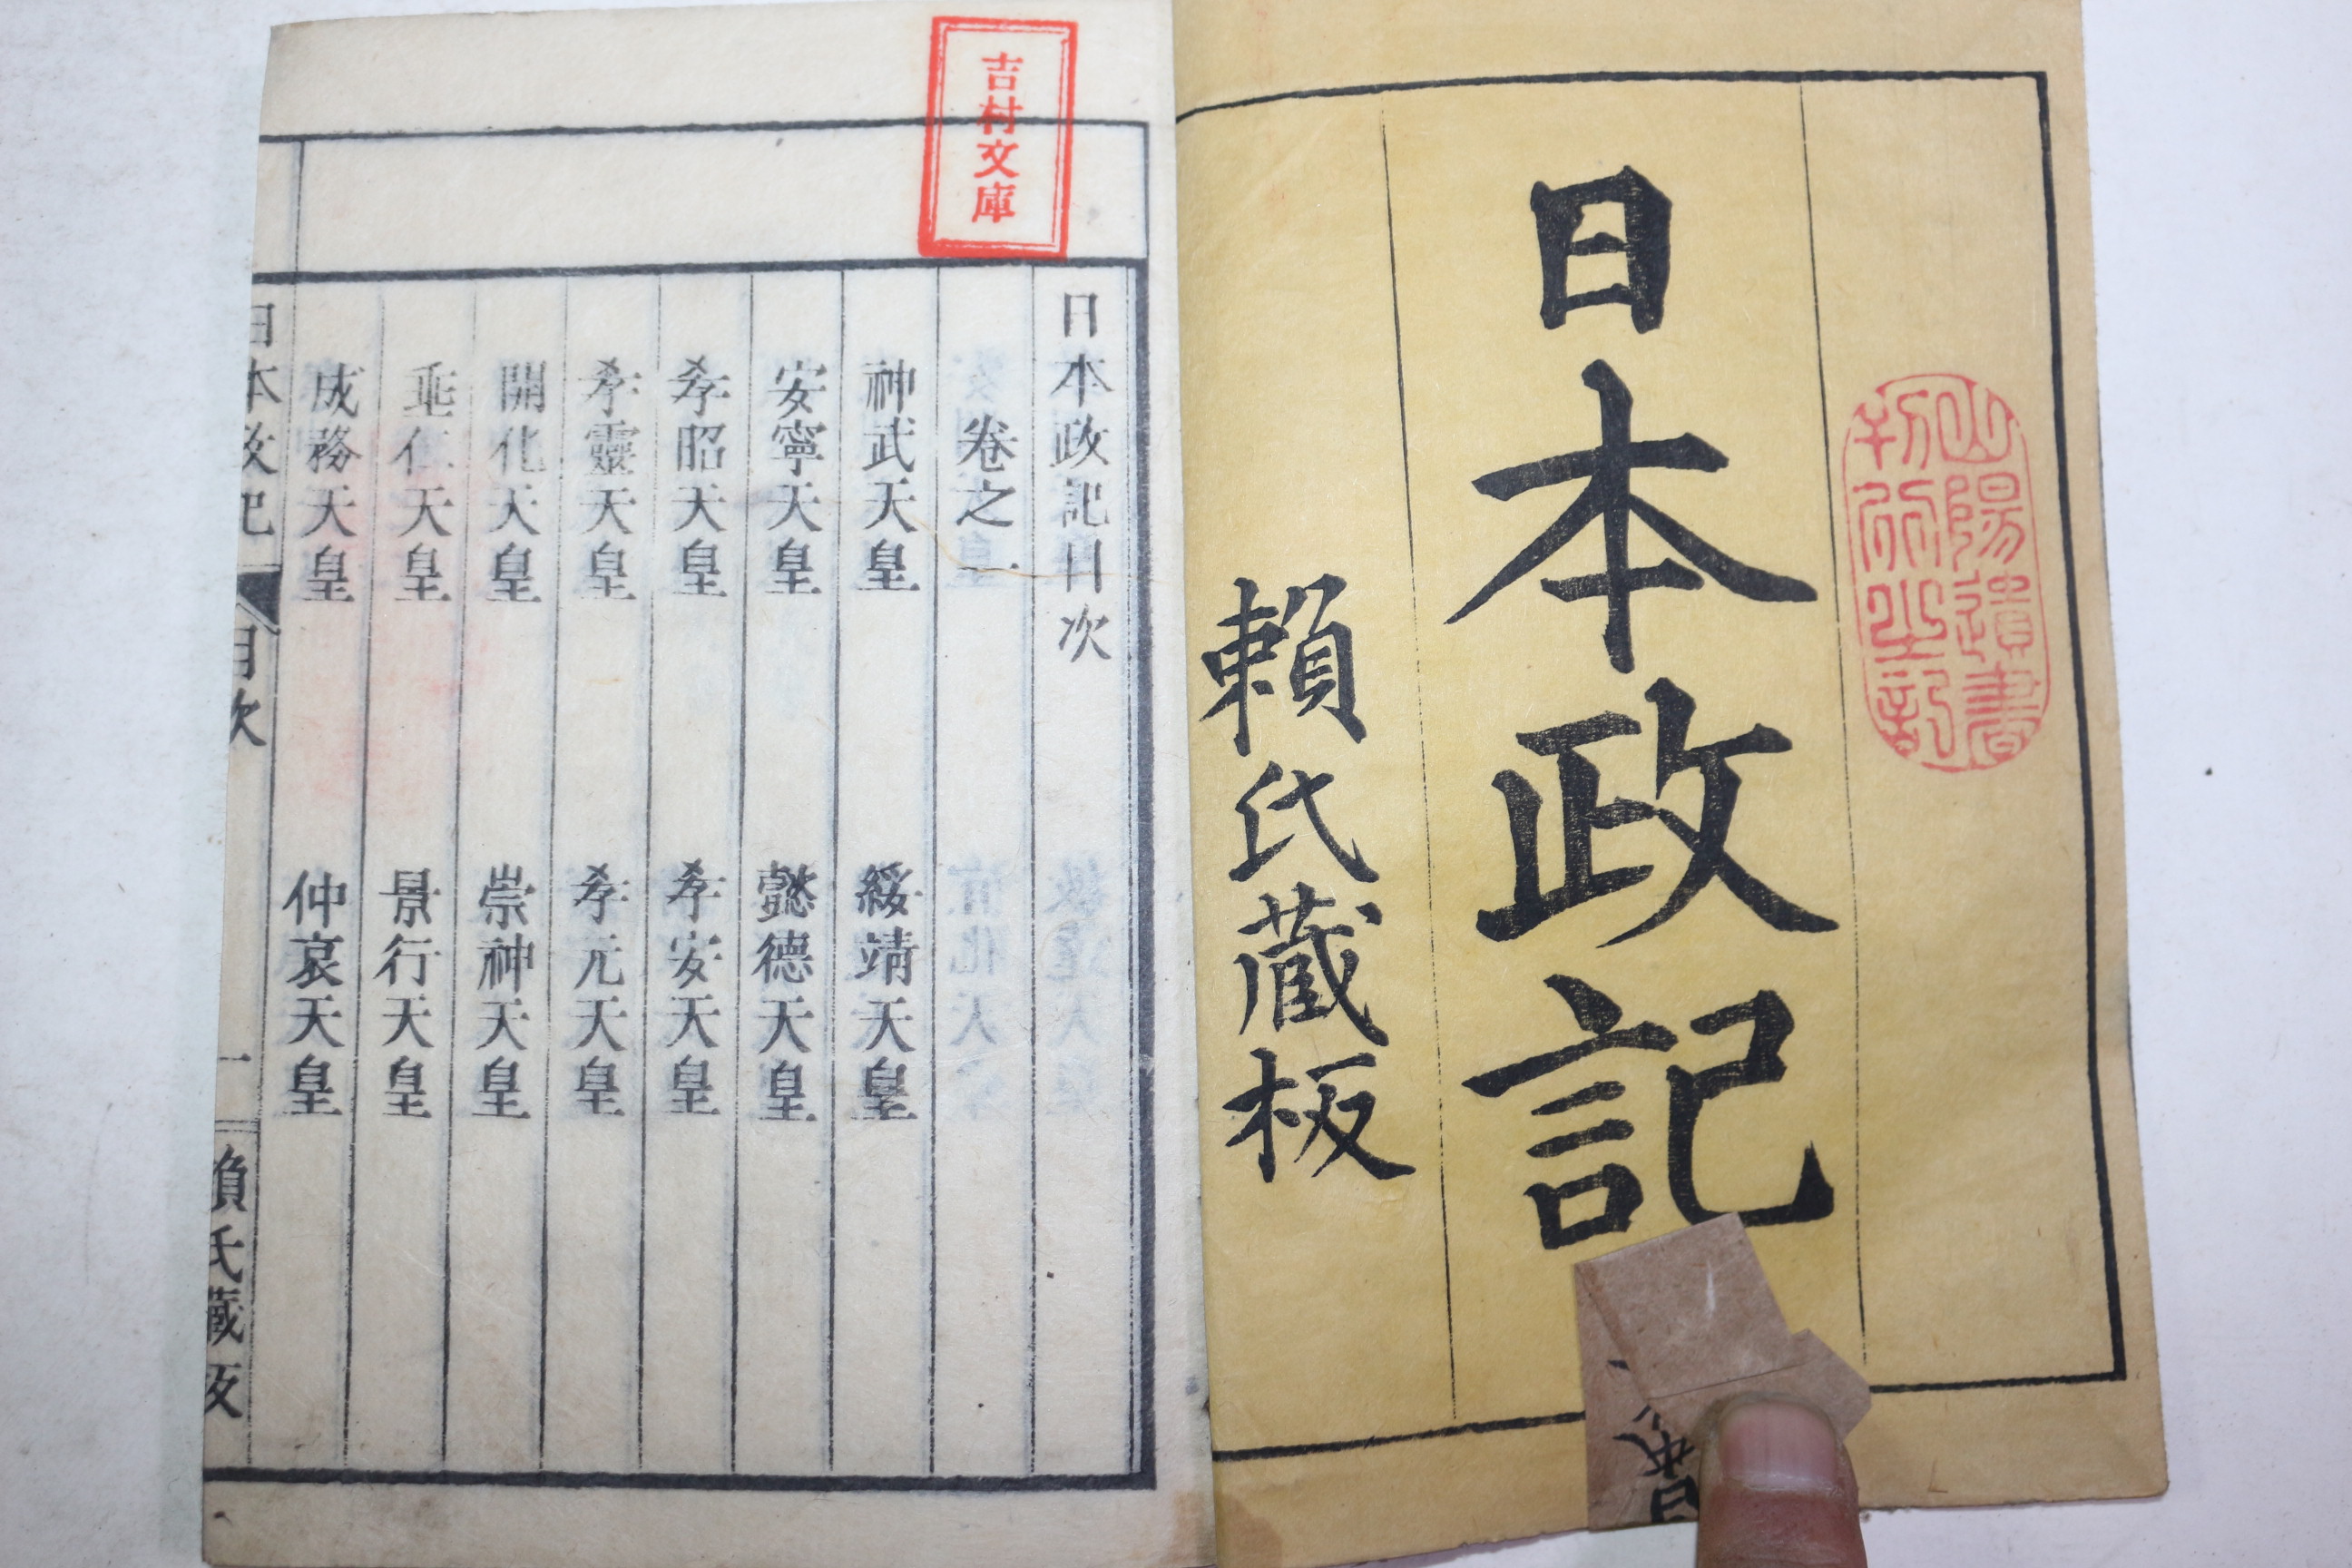 山陽遺書
刊行之記
日本政記
賴氏藏板
吉村文庫
日本政記目次
卷之一
神武天皇 綏靖天皇
安寧天皇 懿德天皇
孝昭天皇 孝安天皇
孝靈天皇 孝元天皇
開化天皇 崇神天皇
垂仁天皇 景行天皇
成務天皇 仲哀天皇
日本政記 目次 一 賴氏藏版